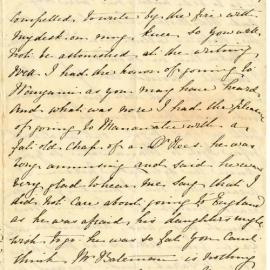 compelled to write by the fire with
my desk on my knee, so you will
not be astonished at the writing
I had the honor of going to
Wanganui as you may have heard
And what was more I had the pleasure
of going to Manawatu with a
fat old Chap of a Dr. he was
very amusing and said he was
very glad to hear me say that I
did not care about going to England
as he was afraid his daughters might
wish to go he was so fat you cant
think Mr Bateman is nothing